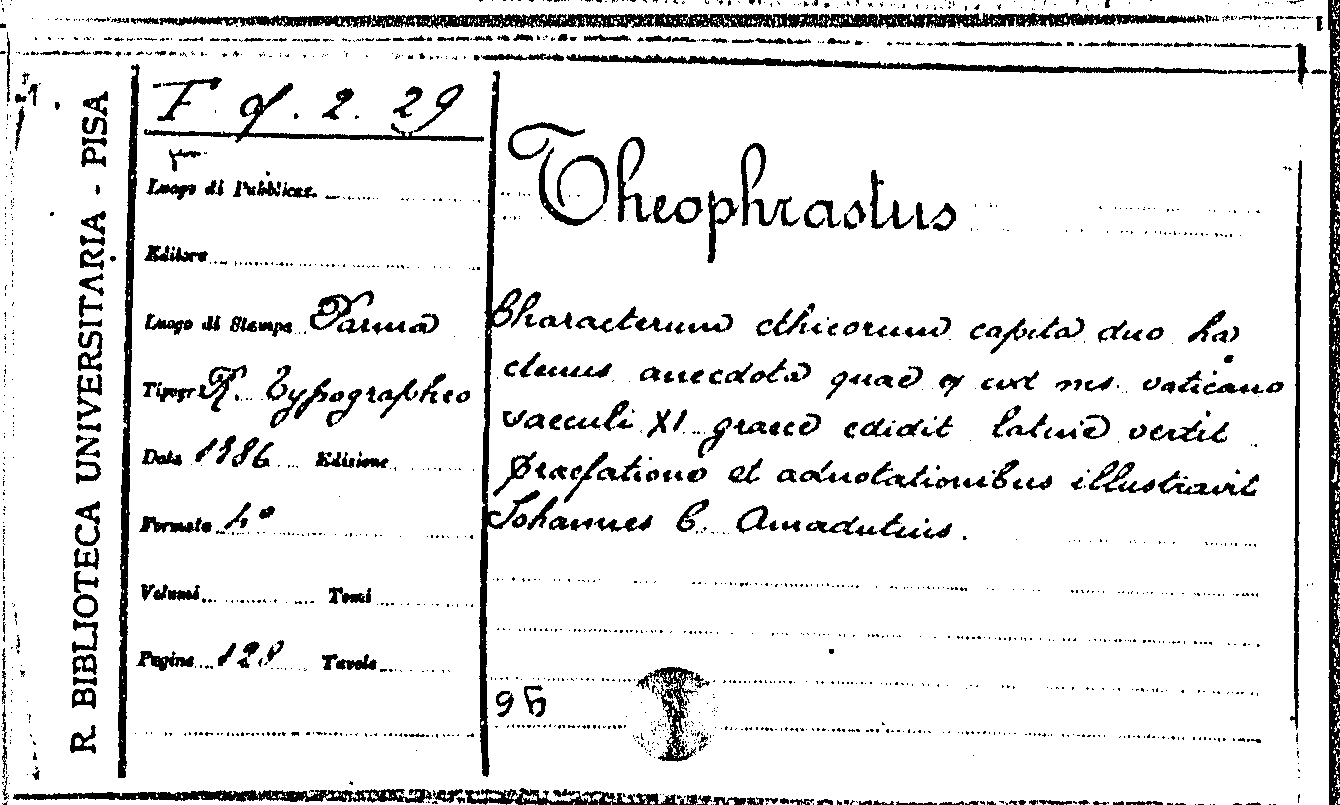 R. BIBLIOTECA UNIVERSITARIA - PISA
F. f. 2. 29
Luogo di Pubblicaz.
Editore
Luogo di Stampa Parma
Tipogr. R. Typographeo
Data 1786 Edizione
Formato 4º
Volumi Tomi
Pagine 128 Tavole
Theophrastus
Characterum ethicorum capita duo ha
ctenus anecdota quae ex cod ms. vaticano
saeculi XI graece edidit latine vertit
praefatione et adnotationibus illustravit
Johannes C. Amadutius.
95